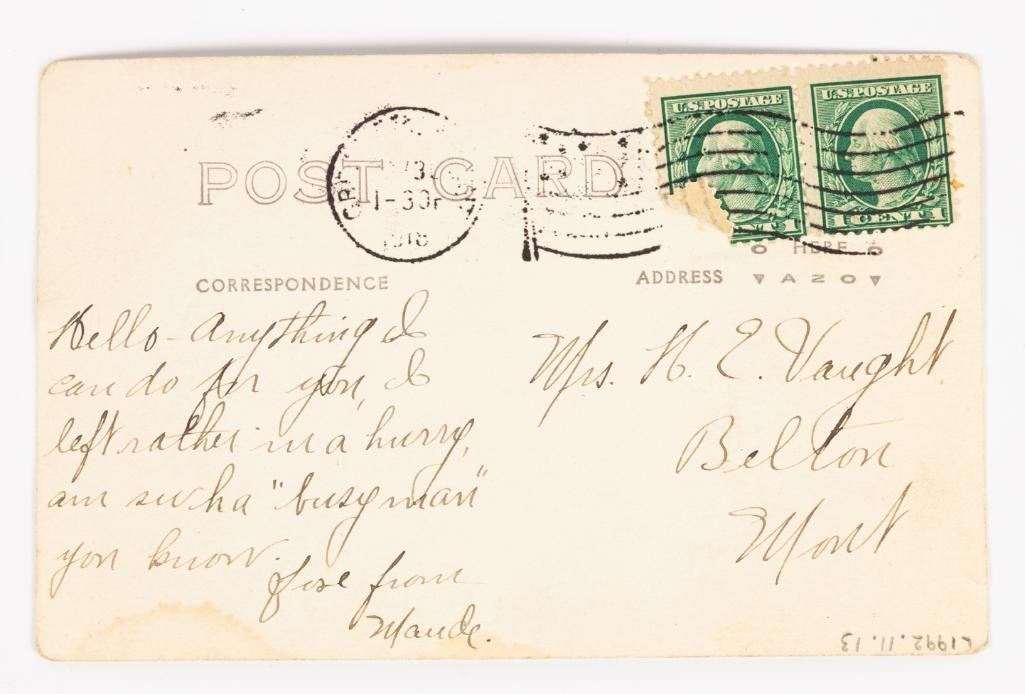 POST CARD
1-30P
1918
U.S. POSTAGE
1
U.S. POSTAGE
1 CENT 1
HERE
AZO
CORRESPONDENCE
ADDRESS
Hello - Anything I
can do for you, I
left rather in a hurry,
am such a "busy man"
you know.
from
Maude.
Mrs. H. E. Vaught,
Belton
Mont
L1992.11.13